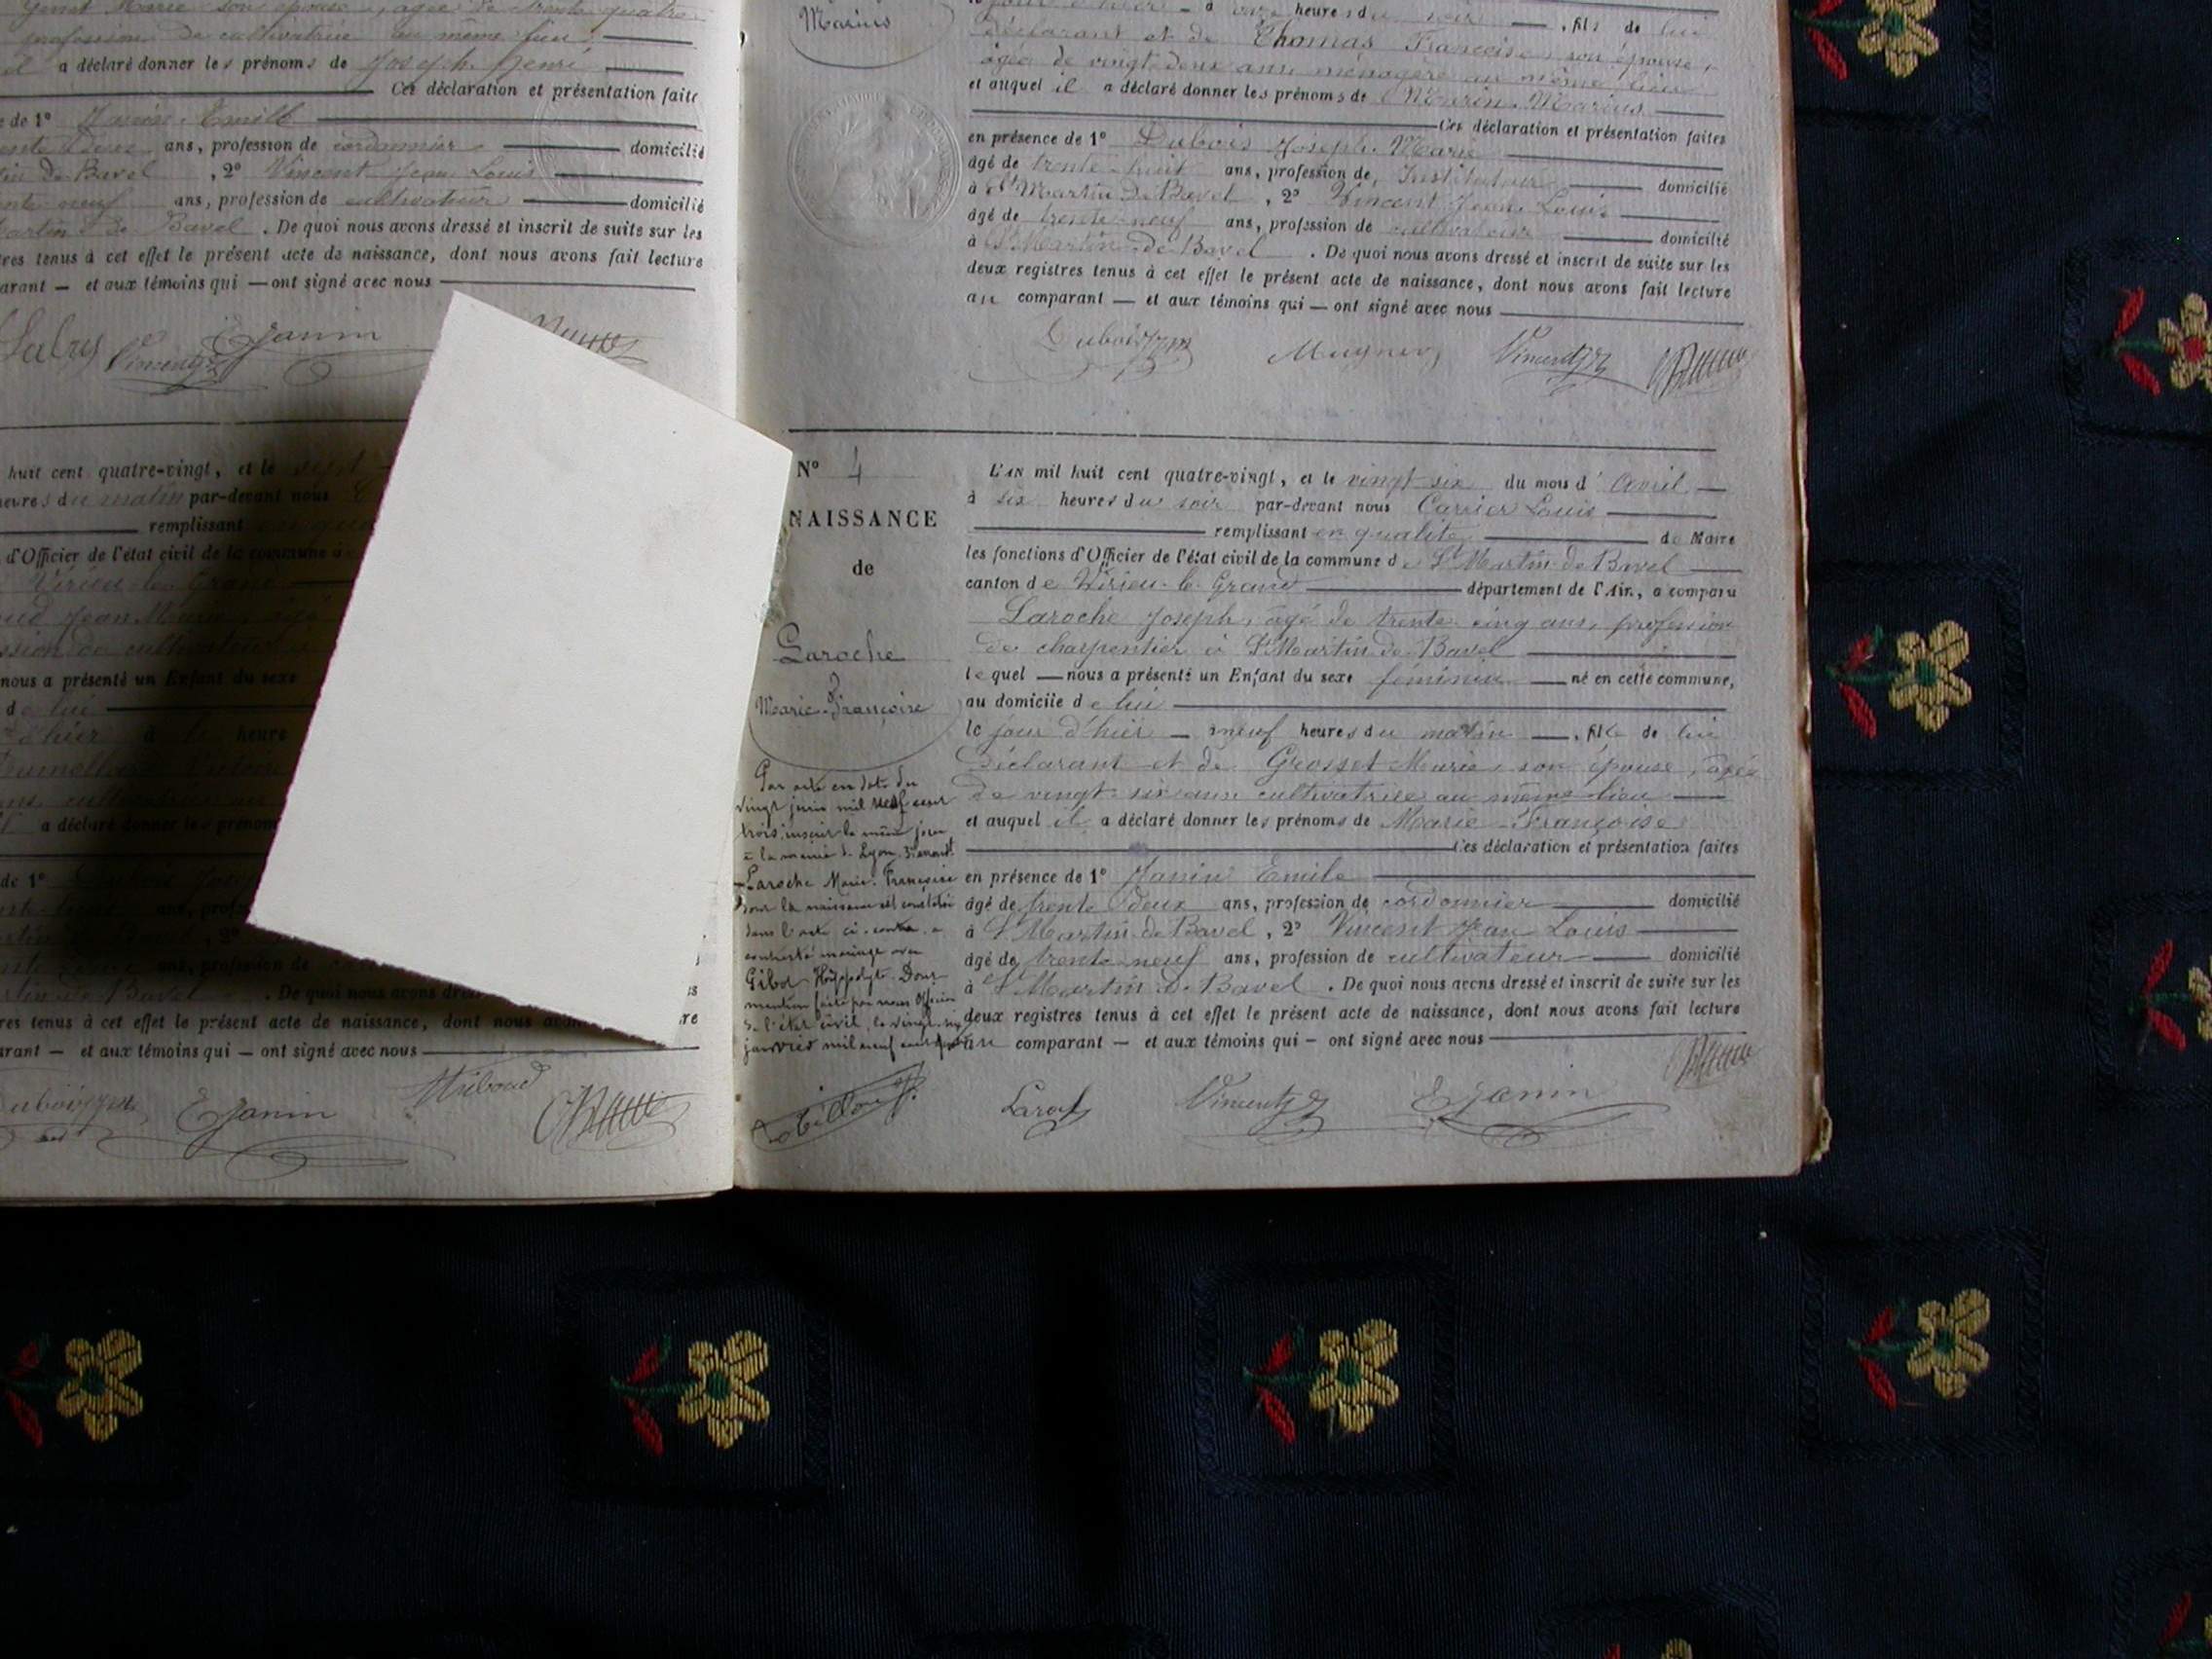 Genet Marie son épouse, agée de trente quatre
profession de cultivatrice au même lieu
il a déclaré donner les prénoms de Joseph Henri
Ces déclaration et présentation faite
e de 1° Janin Emile
ente deux ans, profession de cordonnier domicilié
tin de Bavel , 2° Vincent Jean Louis
ente neuf ans, profession de cultivateur domicilié
artin de Bavel . De quoi nous avons dressé et inscrit de suite sur les
tres tenus à cet effet le présent acte de naissance, dont nous avons fait lecture
arant — et aux témoins qui — ont signé avec nous
Vincent EJanin
huit cent quatre-vingt, et le sept
heures du matin par-devant nous
remplissant en qua
d'Officier de l'état civil de la commune
Virieu-le-Grand
aud Jean Marie, âgé
ssion de cultivateur à
nous a présenté un Enfant du sexe
de lui
d'hier à heure
a déclaré donner les prénom
de 1° Dubois Josep
ans, prof
, 2°
ans, profession de
tin de Bavel . De quoi nous avons dres
res tenus à cet effet le présent acte de naissance, dont nous avon re
arant — et aux témoins qui — ont signé avec nous
Dubois EJanin Thiboud
Marius
le jour d'hier à onze heures du soir , fils de lui
déclarant et de Thomas Françoise, son épouse,
agée de vingt deux ans, ménagère au même lieu
et auquel il a déclaré donner les prénoms de Marin Marius
Ces déclaration et présentation faites
en présence de 1° Dubois Joseph Marie
âgé de trente huit ans, profession de Instituteur domicilié
à St Martin de Bavel , 2° Vincent Jean Louis
âgé de trente-neuf ans, profession de cultivateur domicilié
à St Martin de Bavel . De quoi nous avons dressé et inscrit de suite sur les
deux registres tenus à cet effet le présent acte de naissance, dont nous avons fait lecture
au comparant — et aux témoins qui — ont signé avec nous
Dubois Mugnier Vincent
N° 4
NAISSANCE
de
Laroche
Marie-Françoise
Par acte en date du
vingt juin mil neuf cent
trois, inscrit le même jour
à la mairie de Lyon 3e arrondt
Laroche Marie-Françoise
dont la naissance est constatée
dans l'acte ci-contre a
contracté mariage avec
Gibod Hippolyte. Dont
mention faite par nous Officier
de l'état civil, le vingt-six
janvier mil neuf cent
L'AN mil huit cent quatre-vingt, et le vingt six du mois d' Avril
à six heures du soir par-devant nous Carrier Louis
remplissant en qualité de Maire
les fonctions d'Officier de l'état civil de la commune de St Martin de Bavel
canton de Virieu-le-Grand département de l'Ain, a comparu
Laroche Joseph, âgé de trente cinq ans, profession
de charpentier à St Martin de Bavel
lequel — nous a présenté un Enfant du sexe féminin — né en cette commune,
au domicile de lui
le jour d'hier — neuf heures du matin — , fille de lui
déclarant et de Grosset Marie, son épouse, agée
de vingt-six ans cultivatrice au même lieu
et auquel il a déclaré donner les prénoms de Marie-Françoise
Ces déclaration et présentation faites
en présence de 1° Janin Emile
âgé de trente deux ans, profession de cordonnier domicilié
à St Martin de Bavel , 2° Vincent Jean Louis
âgé de trente neuf ans, profession de cultivateur domicilié
à St Martin de Bavel . De quoi nous avons dressé et inscrit de suite sur les
deux registres tenus à cet effet le présent acte de naissance, dont nous avons fait lecture
au comparant — et aux témoins qui — ont signé avec nous
Laroch Vincent EJanin